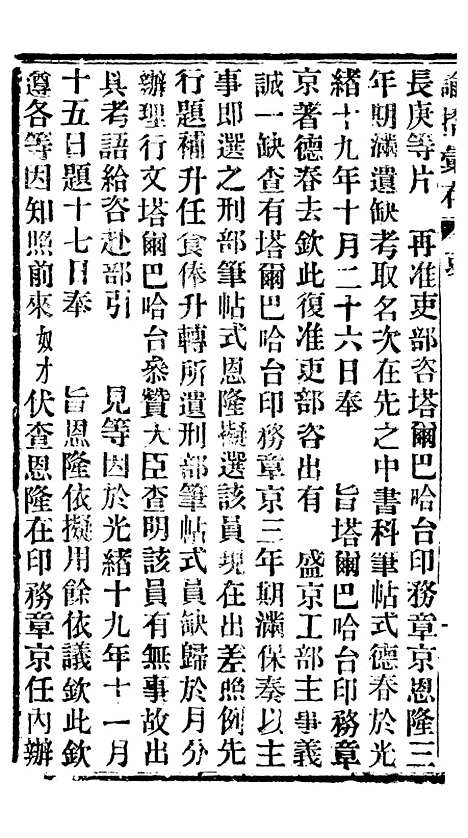 諭摺彙存
長庚等片　再准吏部咨塔爾巴哈台印務章京恩隆三
年期滿遺缺考取名次在先之中書科筆帖式德春於光
緒十九年十月二十六日奉　旨塔爾巴哈台印務章
京著德春去欽此復准吏部咨出有　盛京工部主事義
誠一缺查有塔爾巴哈台印務章京三年期滿保奏以主
事即選之刑部筆帖式恩隆擬選該員現在出差照例先
行題補升任食俸升轉所遺刑部筆帖式員缺歸於月分
辦理行文塔爾巴哈台叅贊大臣查明該員有無事故出
具考語給咨赴部引　見等因於光緒十九年十一月
十五日題十七日奉　旨恩隆依擬用餘依議欽此欽
遵各等因知照前來奴才伏查恩隆在印務章京任內辦